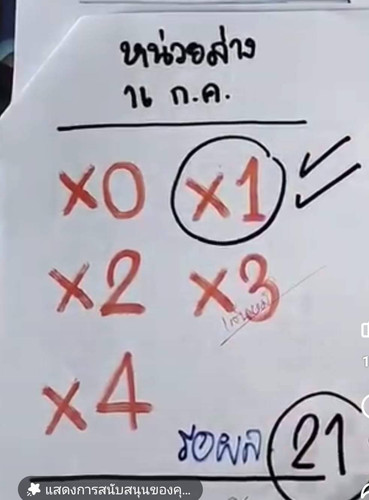 หน่วยล่าง
16 ก.ค.
×0 ×1
×2 ×3
×4
รอผล 21
แสดงการสนับสนุนของคุ...